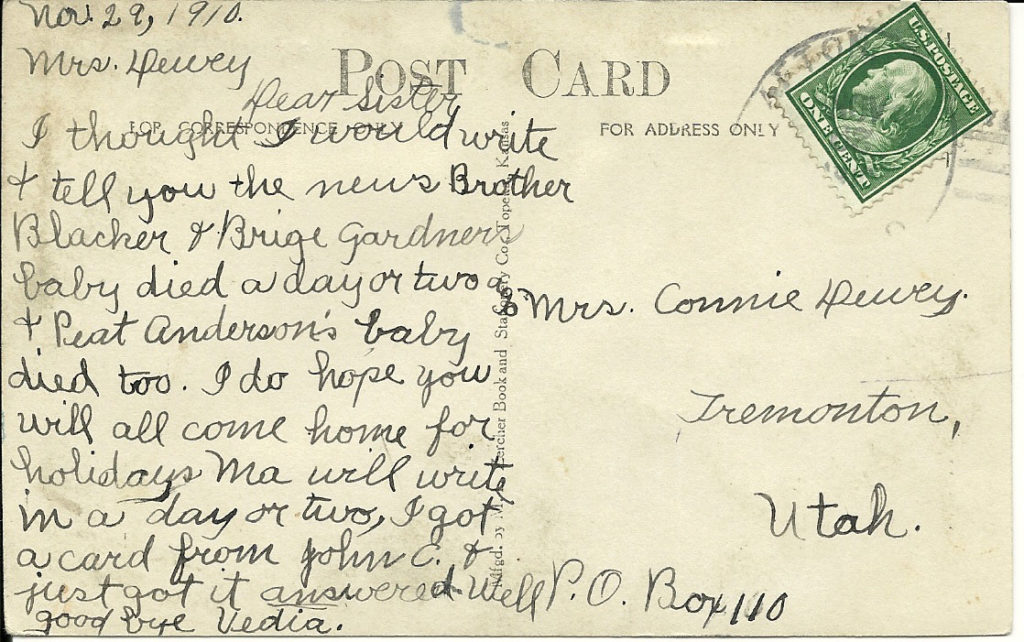 Nov. 29, 1910.
Mrs. Dewey
POST CARD
Dear Sister
FOR CORRESPONDENCE ONLY
FOR ADDRESS ONLY
I thought I would write
& tell you the news Brother
Blacker & Brige Gardners
baby died a day or two a
& Peat Anderson's baby
died too. I do hope you
will all come home for
holidays Ma will write
in a day or two, I got
a card from John C. &
just got it answered. Well
good bye Vedia.
Mfgd. by Book and Stationery Co., Topeka, Kansas
U.S. POSTAGE
ONE CENT
Mrs. Connie Dewey.
Tremonton,
Utah.
P.O. Box 110